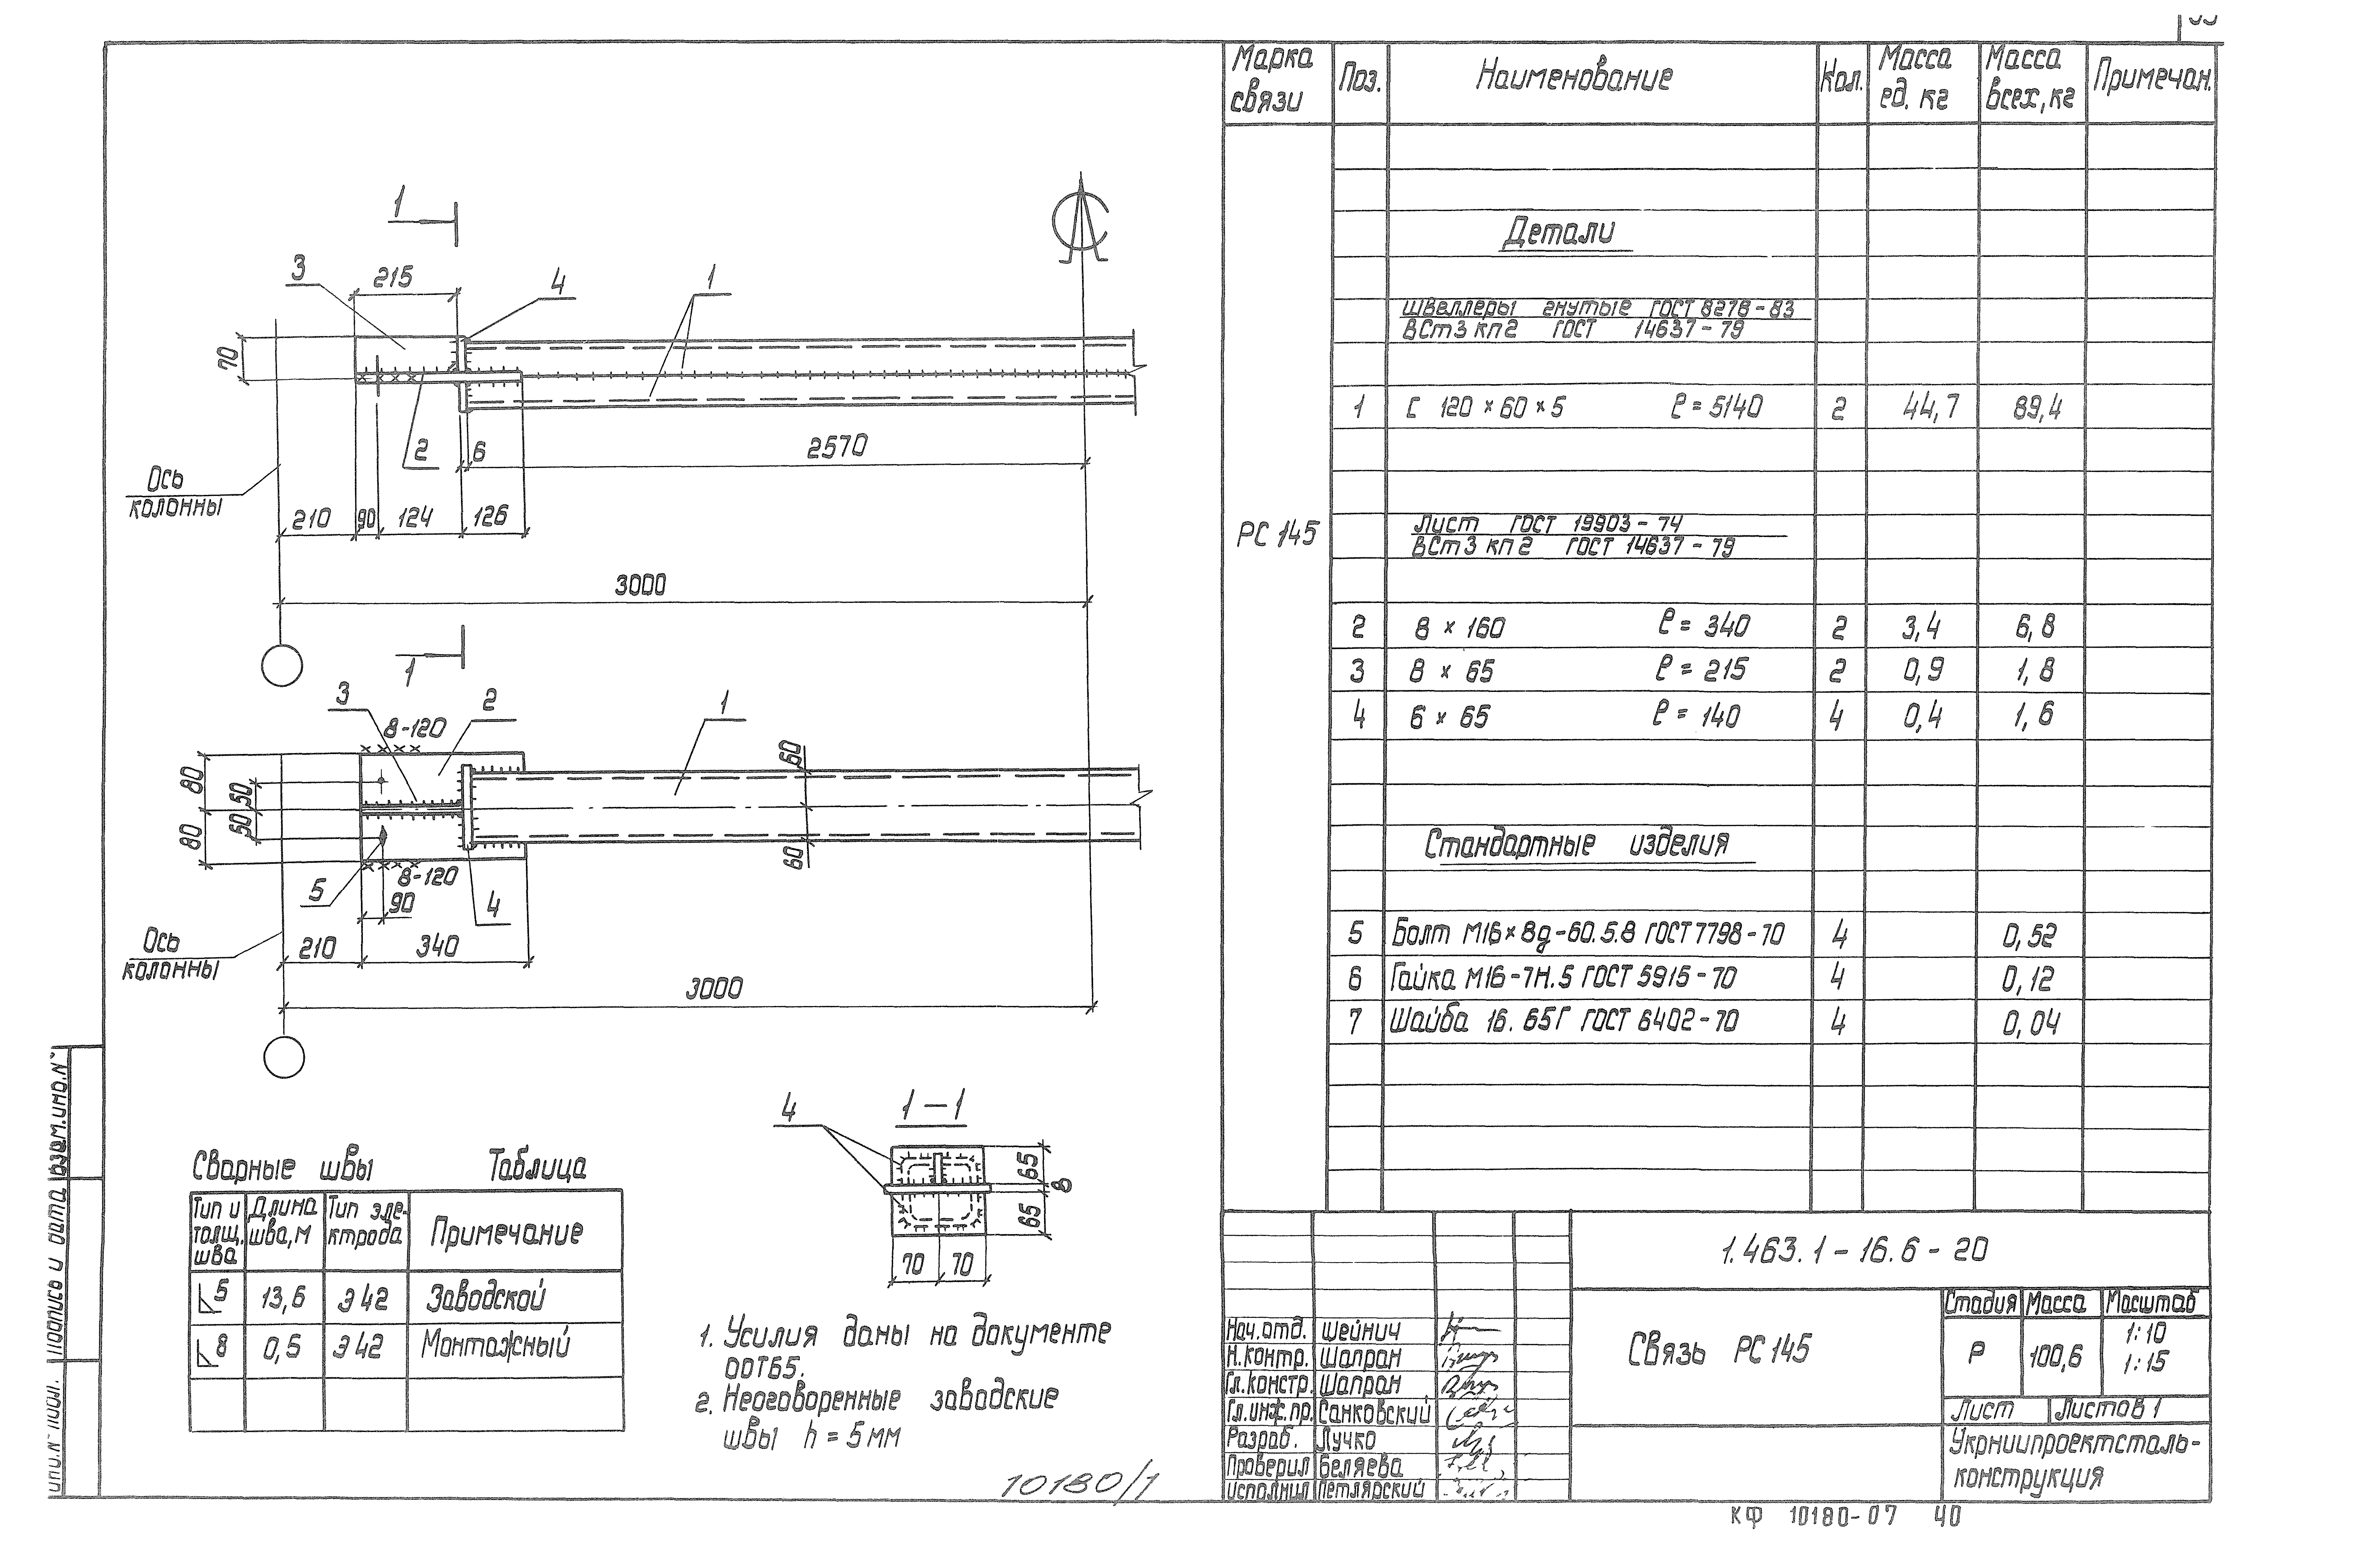 Марка связи Поз. Наименование Кол. Масса ед. кг Масса всех, кг Примечан.
Детали
Швеллеры гнутые ГОСТ 8278-83
ВСт3кп2 ГОСТ 14637-79
1 С 120×60×5 ℓ=5140 2 44,7 89,4
РС 145
Лист ГОСТ 19903-74
ВСт3кп2 ГОСТ 14637-79
2 8×160 ℓ=340 2 3,4 6,8
3 8×65 ℓ=215 2 0,9 1,8
4 6×65 ℓ=140 4 0,4 1,6
Стандартные изделия
5 Болт М16×8g-60.5.8 ГОСТ 7798-70 4 0,52
6 Гайка М16-7Н.5 ГОСТ 5915-70 4 0,12
7 Шайба 16.65Г ГОСТ 6402-70 4 0,04
1
3 215 4 1
70
2 6 2570
1
Ось
колонны
210 90 124 126
3000
1
3 8-120 2 1
80 50 60
80 50 60
5 8-120 4
90
Ось
колонны
210 340
3000
4 1-1
65
8
65
70 70
Сварные швы Таблица
Тип и толщ. шва Длина шва, м Тип электрода Примечание
5 13,6 Э42 Заводской
8 0,5 Э42 Монтажный
1. Усилия даны на документе
00Т65.
2. Неоговоренные заводские
швы h = 5 мм
10180/1
1.463.1-16.6-20
Связь РС145
Стадия Масса Масштаб
Р 100,6 1:10
1:15
Лист Листов 1
Укрниипроектсталь-
конструкция
Нач.отд. Шейнич
Н.контр. Шапран
Гл.констр. Шапран
Гл.инж.пр. Санковский
Разраб. Лучко
Проверил Беляева
Исполнил Петлярский
Взам.инв.№
Подпись и дата
Инв.№ подл.
КФ 10180-07 40